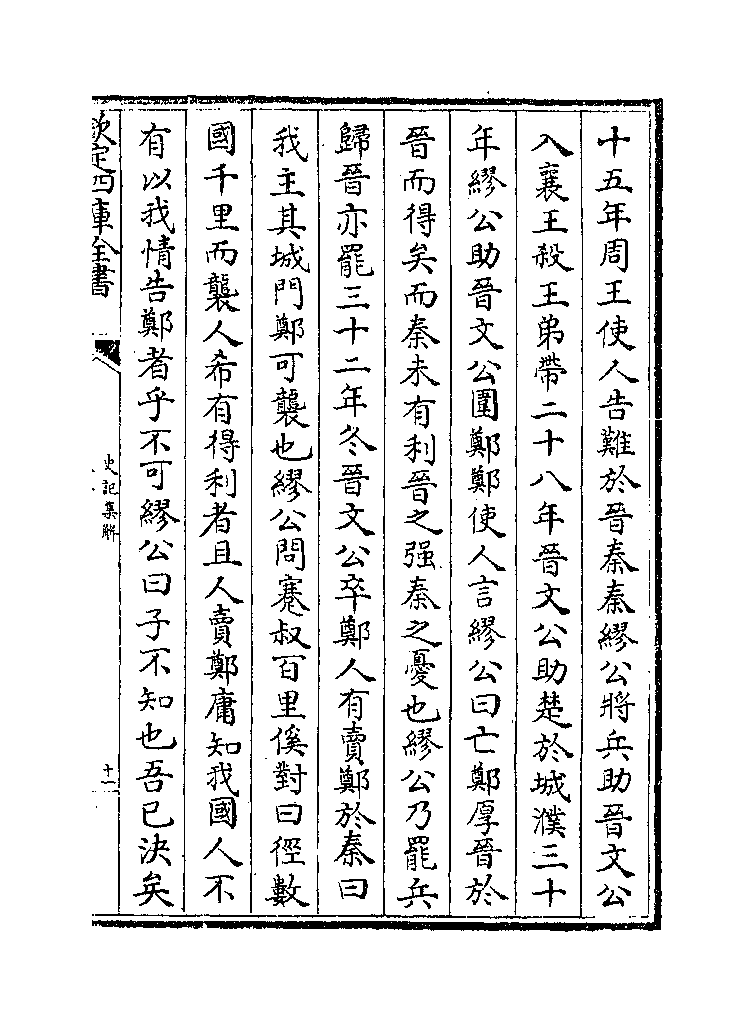 十五年周王使人告難於晉秦秦繆公將兵助晉文公
入襄王殺王弟帶二十八年晉文公助楚於城濮三十
年繆公助晉文公圍鄭鄭使人言繆公曰亡鄭厚晉於
晉而得矣而秦未有利晉之强秦之憂也繆公乃罷兵
歸晉亦罷三十二年冬晉文公卒鄭人有賣鄭於秦曰
我主其城門鄭可襲也繆公問蹇叔百里傒對曰徑數
國千里而襲人希有得利者且人賣鄭庸知我國人不
有以我情告鄭者乎不可繆公曰子不知也吾已決矣
欽定四庫全書
史記集解
十一